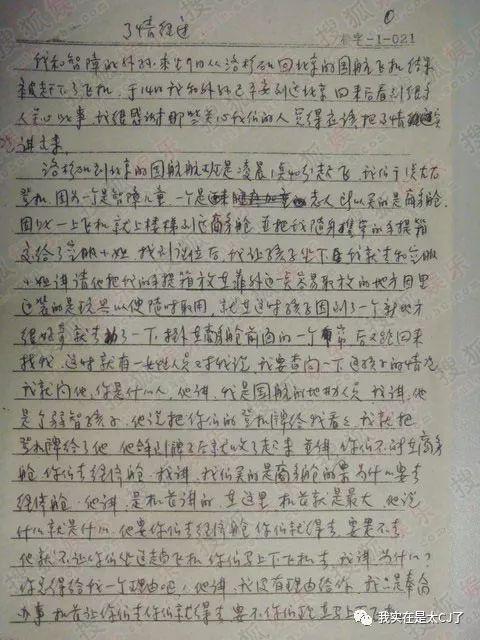 了情经过
0
-1-021
我和智障的外孙来9日从洛杉矶回北京的国航飞机结果
被赶下了飞机，于14日我和外孙已平安到达北京 回来后看到很多
人关心此事 我很感谢那些关心我们的人 觉得应该把事情
讲出来
洛杉矶到北京的国航航班是凌晨1点40分起飞，我们于1点左右
登机，因为一个是智障儿童，一个是老人 所以买的是商务舱
因此一上飞机就上楼梯到达商务舱 并把我随身携带的手提箱
交给了空服小姐 找到坐位后 我让孩子坐下 我就去和空服
小姐讲请他把我的手提箱放在靠外边一点容易取放的地方 因里
边装的是玩具以便随时取用，就在这时孩子因到了一个新地方
很好奇就去了一下 在商务舱前面的一个帘 后又跑回来
找我，这时就有一女性人员对我说，我要查问一下这孩子的情况
我就问他，你是什么人，他讲，我是国航的地勤人员，我讲，他
是个弱智孩子，他说把你们的登机牌给我看看 我就把
登机牌给了他，他拿到牌子后就收了起来 并讲，你们不能坐商务
舱 你们去经济舱，我讲，我们买的是商务舱的票为什么要去
经济舱，他讲，是机长讲的，在这里 机长就是最大，他说
什么就是什么，他要你们去经济舱 你们就得去 要是不去
他就不让你们坐这趟飞机 你们马上下飞机去，我讲，为什么，
你总得给我一个理由吧，他讲，我没有理由给你，我只是奉命
办事 机长让你们去你们就得去 要不你们现在马上
我实在是太CJ了